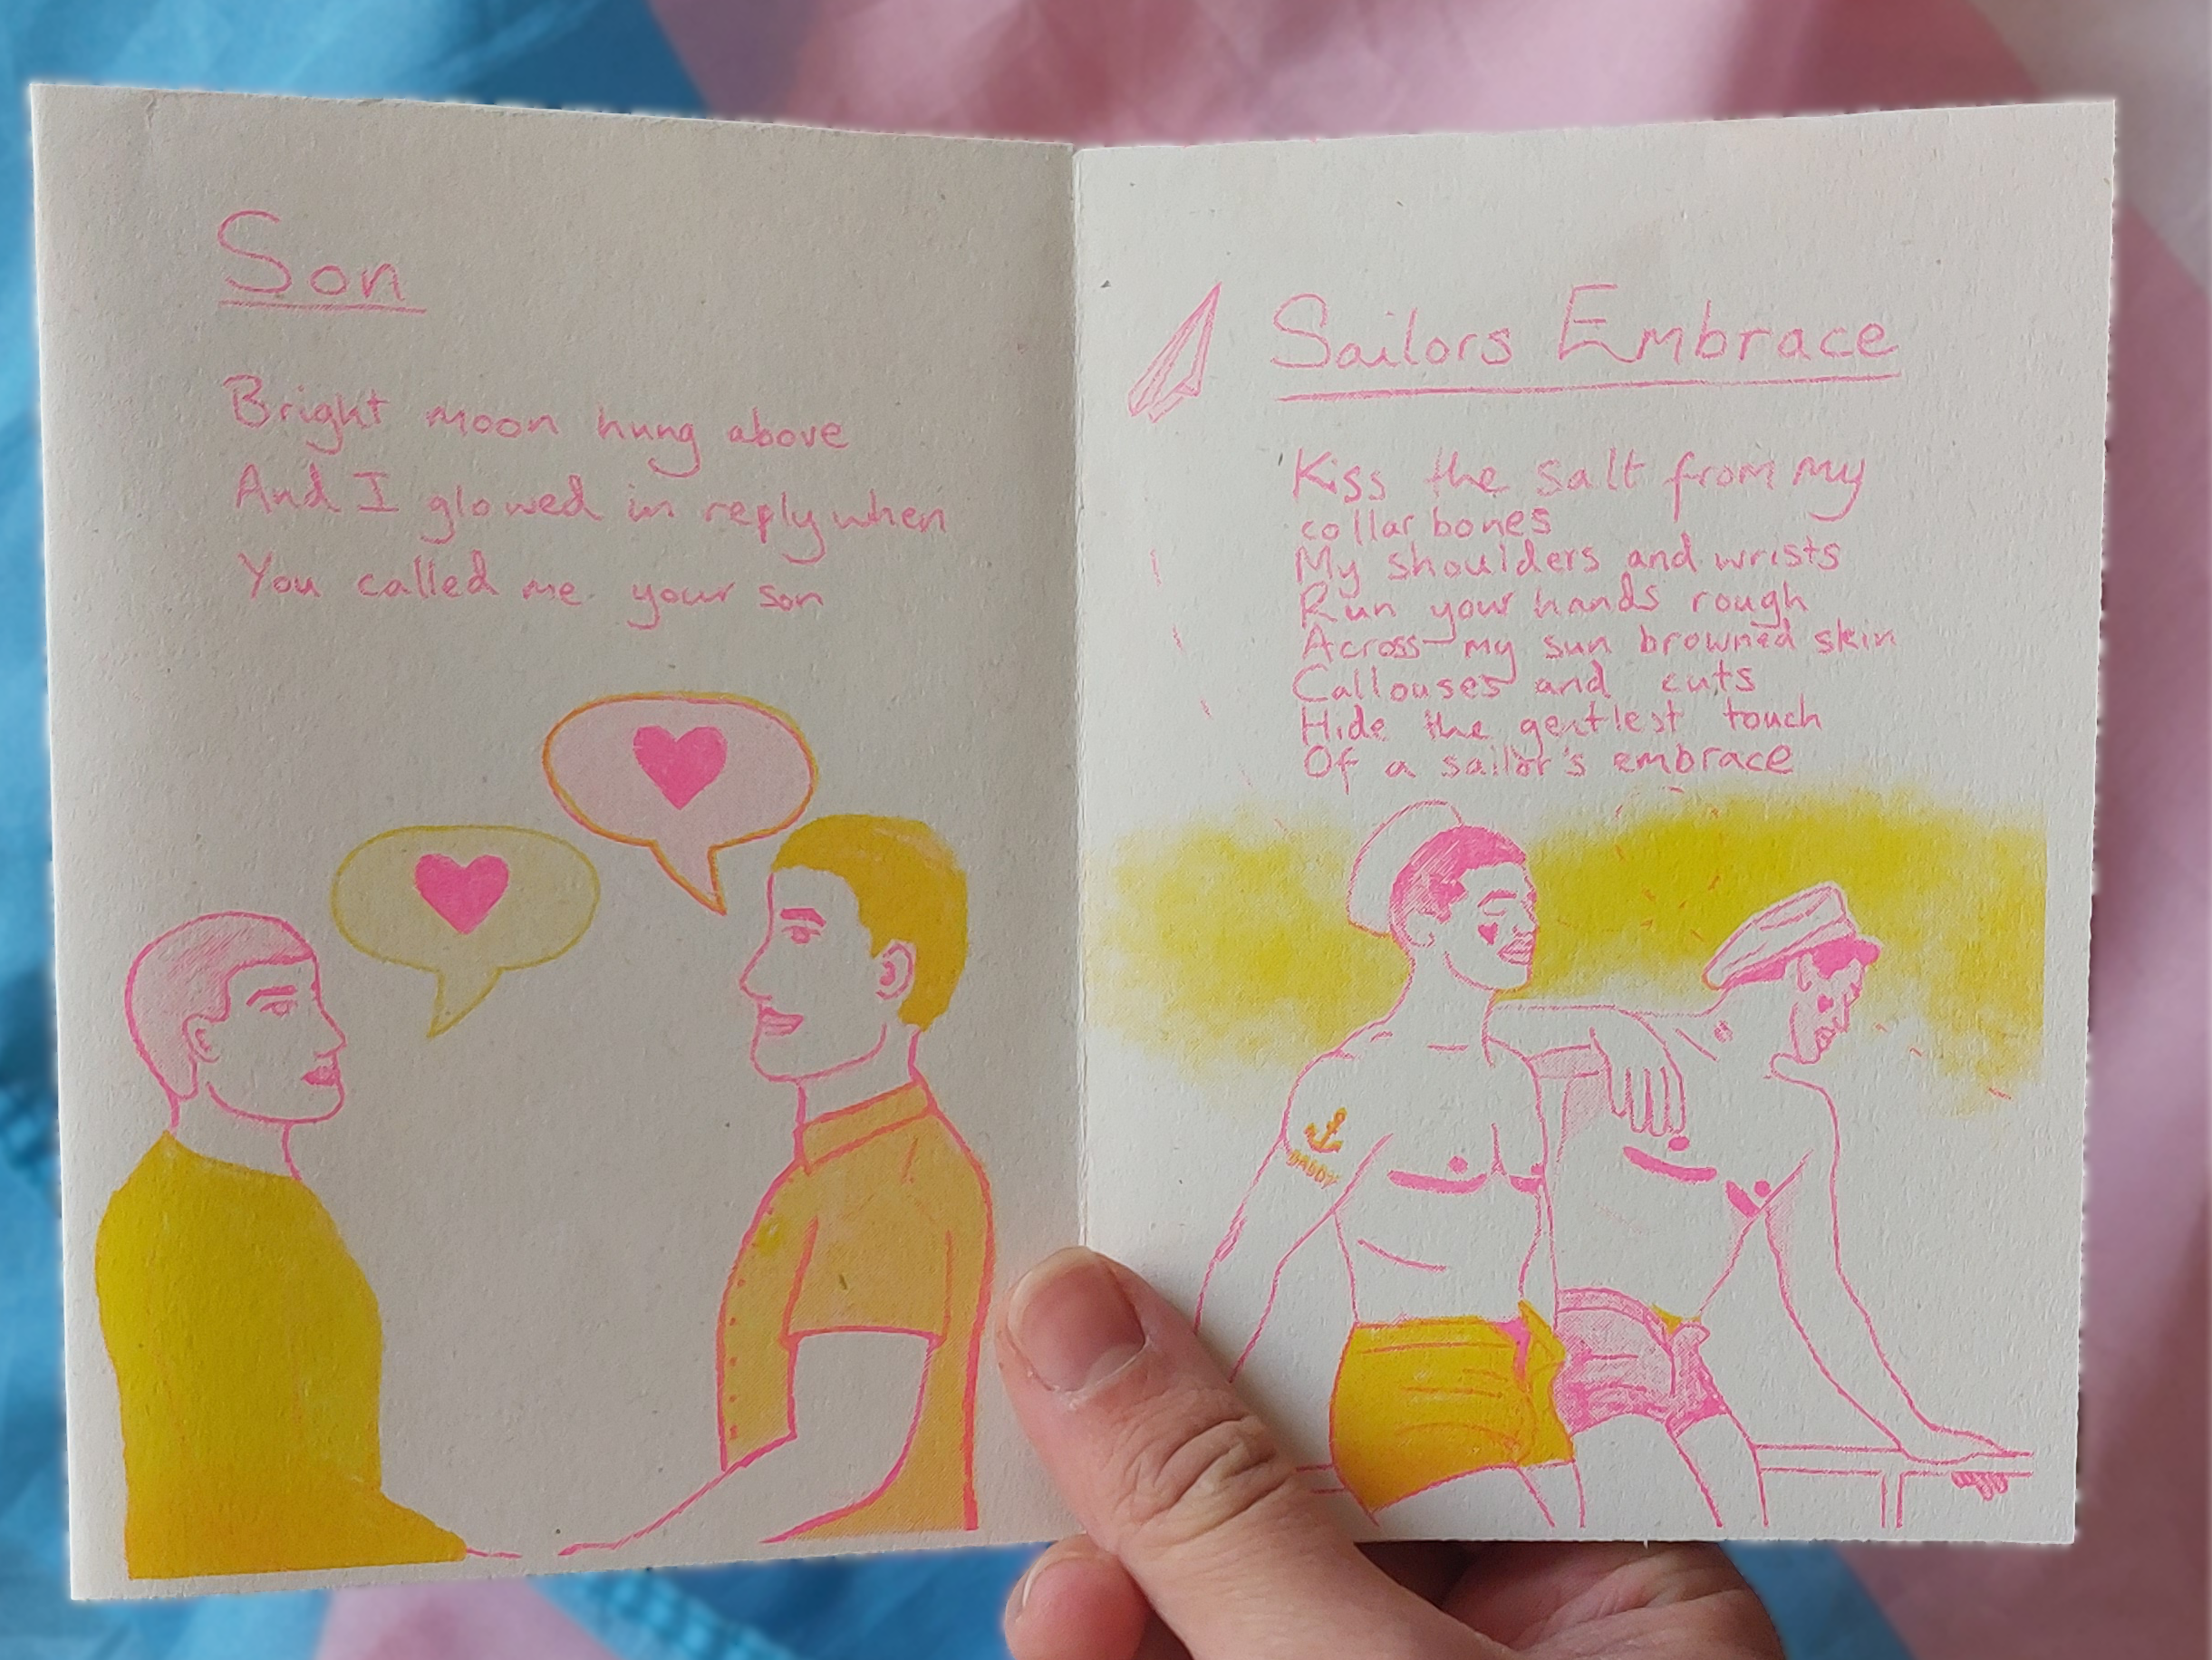 Son
Bright moon hung above
And I glowed in reply when
You called me your son
Sailors Embrace
Kiss the salt from my
collar bones
My shoulders and wrists
Run your hands rough
Across my sun browned skin
Callouses and cuts
Hide the gentlest touch
Of a sailor's embrace
DADDY